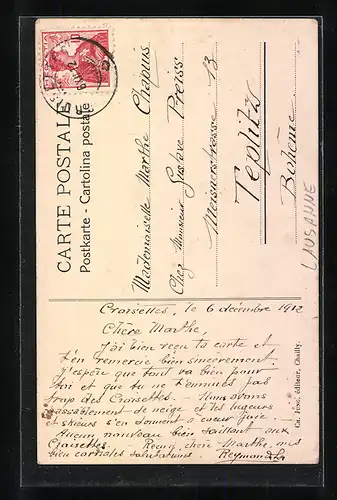 CARTE POSTALE
Postkarte - Cartolina postale
Mademoiselle Marthe Chapuis
Chez Monsieur Gustave Preiss
Meisnerstrasse 13
Teplitz
Bohême
LAUSANNE
Croisettes, le 6 décembre 1912
Chère Marthe,
J'ai bien reçu ta carte et
t'en remercie bien sincèrement.
J'espère que tout va bien pour
toi et que tu ne t'ennuies pas
trop des Croisettes. - Nous avons
passablement de neige et les lugeurs
et skieurs s'en donnent à coeur joie.
Aucun nouveau bien saillant aux
Croisettes. Reçois, chère Marthe, mes
bien cordiales salutations. Reymond
éditeur, Chailly.